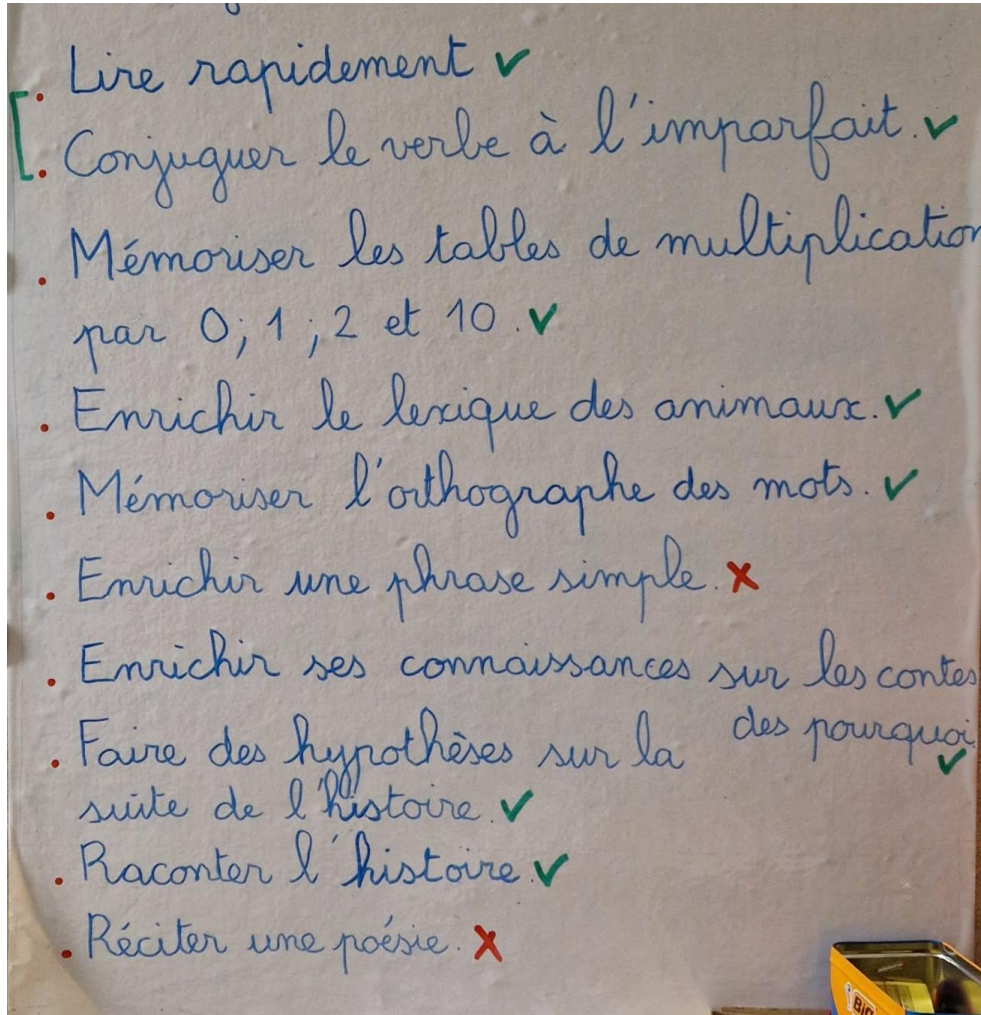 Lire rapidement ✓
. Conjuguer le verbe à l'imparfait. ✓
. Mémoriser les tables de multiplication
par 0 ; 1 ; 2 et 10. ✓
. Enrichir le lexique des animaux. ✓
. Mémoriser l'orthographe des mots. ✓
. Enrichir une phrase simple. X
. Enrichir ses connaissances sur les contes
des pourquoi. ✓
. Faire des hypothèses sur la
suite de l'histoire. ✓
. Raconter l'histoire. ✓
. Réciter une poésie. X
BIC